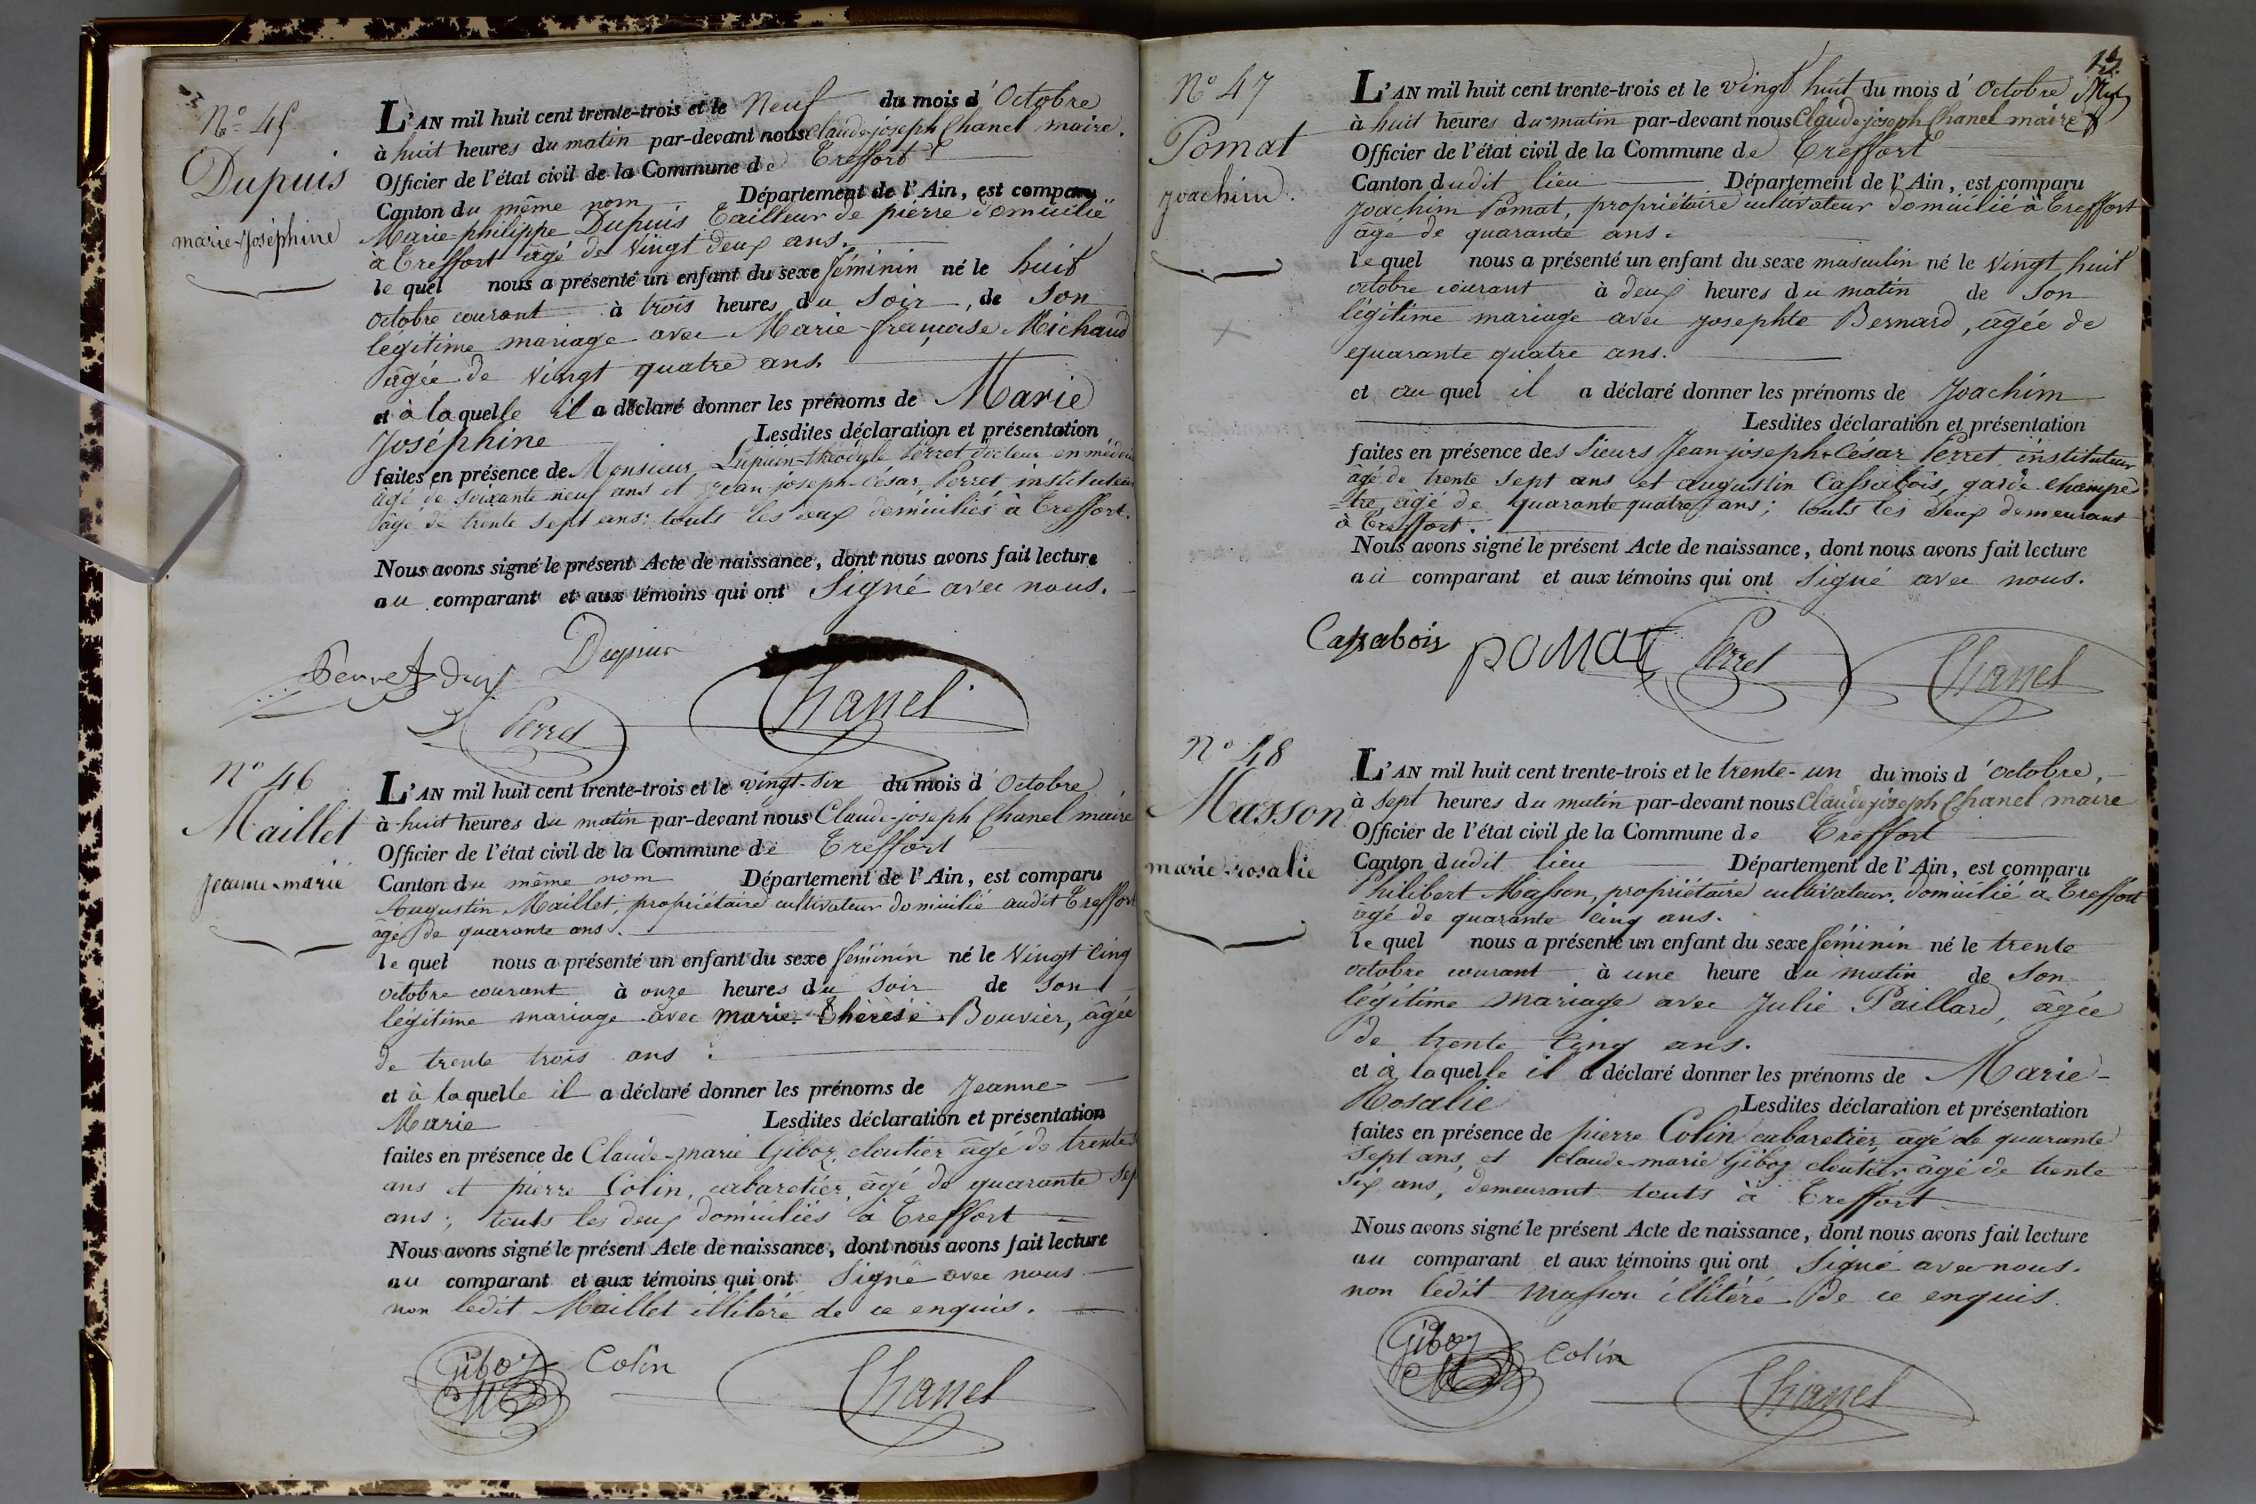 N.º 45
Dupuis
marie-Joséphine
L'AN mil huit cent trente-trois et le Neuf du mois d'Octobre
à huit heures du matin par-devant nous Claude-joseph Chanel maire.
Officier de l'état civil de la Commune de Treffort
Canton du même nom Département de l'Ain, est comparu
Marie-philippe Dupuis Tailleur de pierre domicilié
à Treffort âgé de Vingt deux ans.
lequel nous a présenté un enfant du sexe féminin né le huit
octobre courant à trois heures du Soir, de Son
légitime mariage avec Marie-françoise Michaud
âgée de vingt quatre ans.
et à laquelle il a déclaré donner les prénoms de Marie
Joséphine Lesdites déclaration et présentation
faites en présence de Monsieur Perret docteur en
âgé de soixante neuf ans et Jean-joseph-César Perret instituteur
âgé de trente sept ans; touts les deux domiciliés à Treffort.
Nous avons signé le présent Acte de naissance, dont nous avons fait lecture
au comparant et aux témoins qui ont Signé avec nous.
Dupuis
Perret
Chanel
N.º 46
Maillet
jeanne-marie
L'AN mil huit cent trente-trois et le vingt-six du mois d'Octobre
à huit heures du matin par-devant nous Claude-joseph Chanel maire
Officier de l'état civil de la Commune de Treffort
Canton du même nom Département de l'Ain, est comparu
Augustin Maillet, propriétaire cultivateur domicilié audit Treffort
âgé de quarante ans.
lequel nous a présenté un enfant du sexe féminin né le Vingt Cinq
octobre courant à onze heures du Soir de Son
légitime mariage avec marie-Thérèse Bouvier, âgée
de trente trois ans.
et à laquelle il a déclaré donner les prénoms de Jeanne
Marie Lesdites déclaration et présentation
faites en présence de Claude-marie Giboz cloutier âgé de trente
ans et pierre Colin, cabaretier âgé de quarante sept
ans; touts les deux domiciliés à Treffort
Nous avons signé le présent Acte de naissance, dont nous avons fait lecture
au comparant et aux témoins qui ont Signé avec nous
non ledit Maillet illitéré de ce enquis.
Giboz Colin Chanel
N.º 47
Pomat
Joachim.
L'AN mil huit cent trente-trois et le vingt huit du mois d'Octobre
à huit heures du matin par-devant nous Claude joseph Chanel maire
Officier de l'état civil de la Commune de Treffort
Canton dudit lieu Département de l'Ain, est comparu
Joachim Pomat, propriétaire cultivateur domicilié à Treffort
âgé de quarante ans.
lequel nous a présenté un enfant du sexe masculin né le Vingt huit
octobre courant à deux heures du matin de Son
légitime mariage avec Josephte Bernard, âgée de
quarante quatre ans.
et au quel il a déclaré donner les prénoms de Joachim
Lesdites déclaration et présentation
faites en présence des Sieurs Jean-joseph-César Perret instituteur
âgé de trente sept ans et augustin Cassabois, garde champê
=tre âgé de quarante quatre ans; touts les deux demeurant
à Treffort.
Nous avons signé le présent Acte de naissance, dont nous avons fait lecture
au comparant et aux témoins qui ont Signé avec nous.
Cassabois pomat Perret Chanel
N.º 48
Masson
marie-rosalie
L'AN mil huit cent trente-trois et le trente-un du mois d'octobre,
à sept heures du matin par-devant nous Claude joseph Chanel maire
Officier de l'état civil de la Commune de Treffort
Canton dudit lieu Département de l'Ain, est comparu
Philibert Masson, propriétaire cultivateur, domicilié à Treffort
âgé de quarante cinq ans.
lequel nous a présenté un enfant du sexe féminin né le trente
octobre courant à une heure du matin de Son
légitime mariage avec Julie Paillard, âgée
de trente Cinq ans.
et à laquelle il a déclaré donner les prénoms de Marie-
Rosalie Lesdites déclaration et présentation
faites en présence de pierre Colin cabaretier âgé de quarante
sept ans, et claude-marie Giboz cloutier âgé de trente
six ans, demeurant touts à Treffort
Nous avons signé le présent Acte de naissance, dont nous avons fait lecture
au comparant et aux témoins qui ont Signé avec nous.
non ledit Masson illitéré de ce enquis.
Giboz Colin Chanel